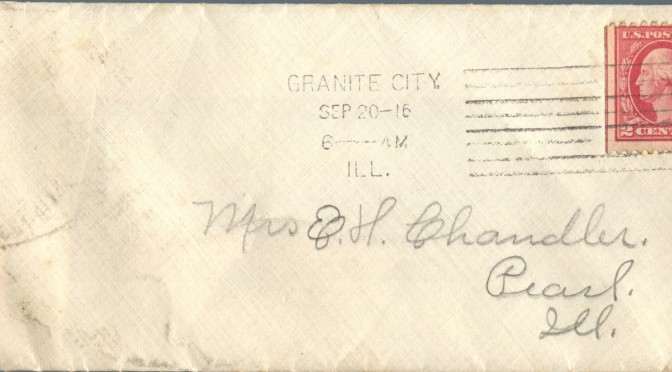 U.S. POST
GRANITE CITY.
SEP 20-16
6 AM
ILL.
2 CENT
Mrs E. H. Chandler.
Pearl.
Ill.